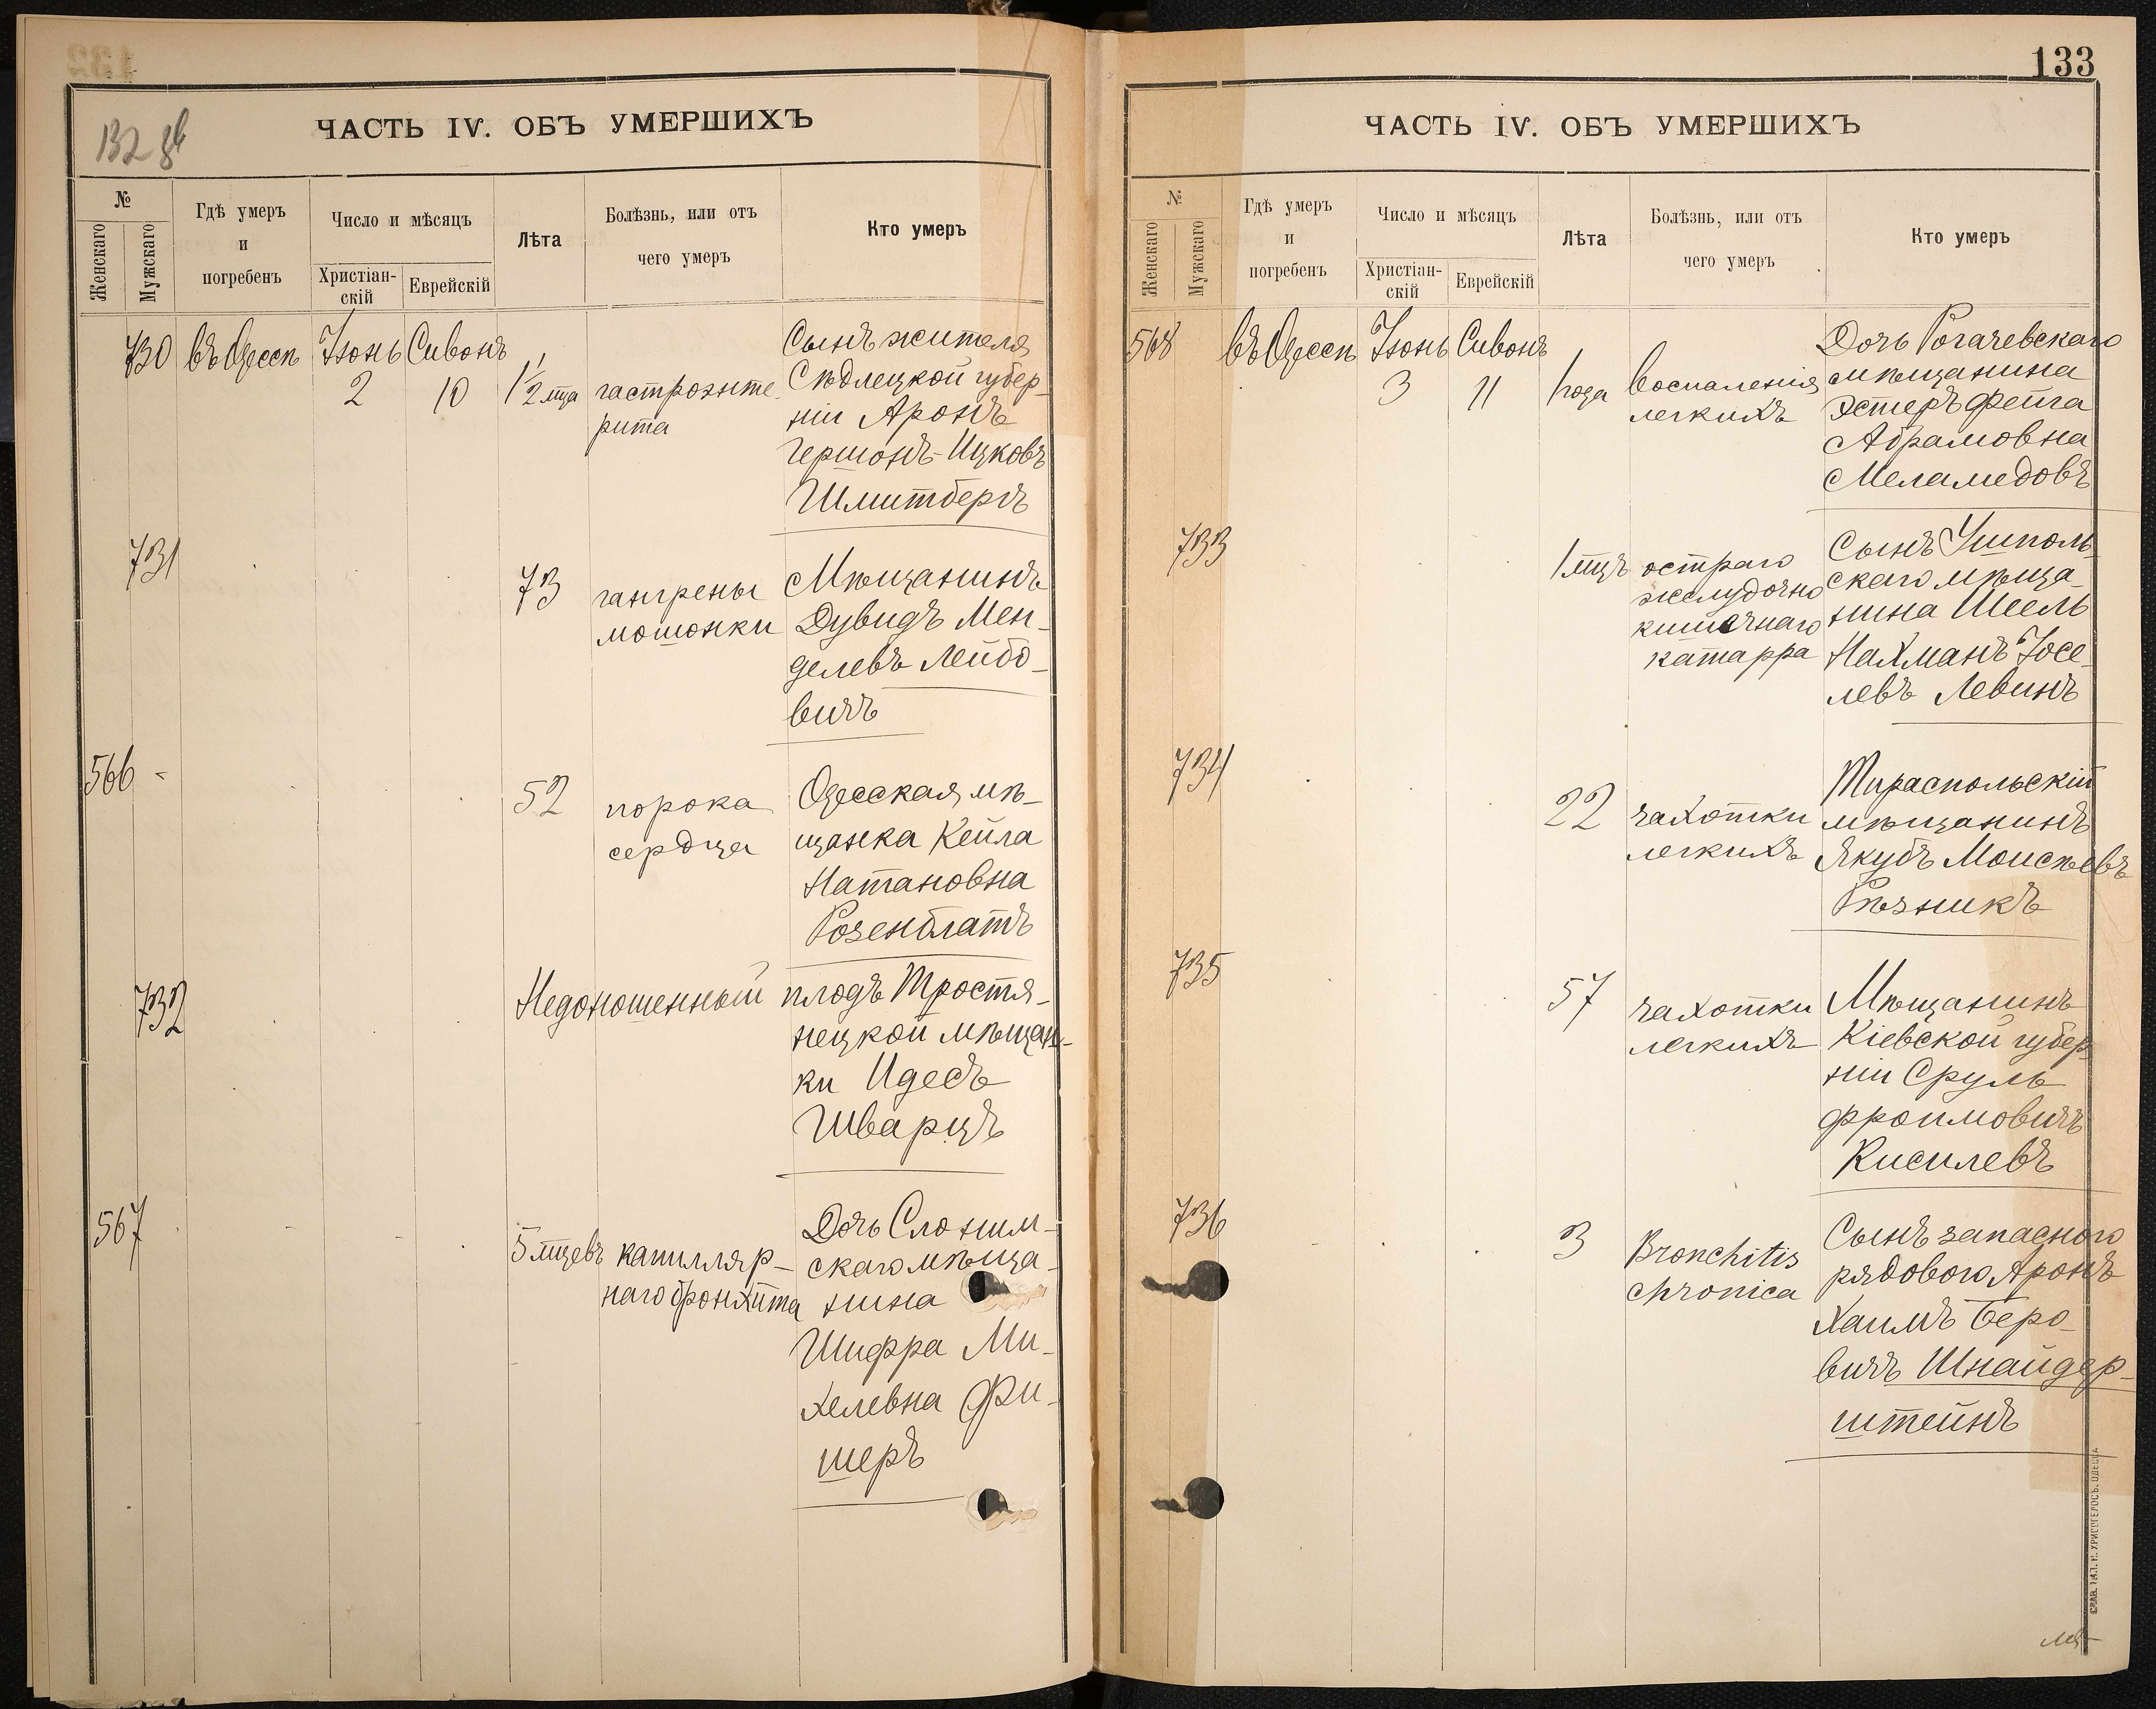 132 об
ЧАСТЬ IV. ОБЪ УМЕРШИХЪ
№
Женскаго
Мужскаго
Гдѣ умеръ
и
погребенъ
Число и мѣсяцъ
Христіан-
скій
Еврейскій
Лѣта
Болѣзнь, или отъ
чего умеръ
Кто умеръ
730 въ Одессѣ Іюнь Сивонъ
2 10 1 1/2 мца гастроэнте-
рита
Сынъ жителя
Сѣдлецкой губер-
ніи Аронъ
Гершонъ-Ицковъ
Шмитбергъ
731
73 гангрены
мошонки
Мѣщанинъ
Дувидъ Мен-
делевъ Лейбо-
вичъ
566 -
52 порока
сердца
Одесская мѣ-
щанка Кейла
Натановна
Розенблатъ
732
Недоношенный плодъ Тростя-
нецкой мѣщан-
ки Идесъ
Шварцъ
567
5 мцевъ капилляр-
наго бронхита
Дочь Слоним-
скаго мѣща-
нина
Шифра Ми-
хелевна Фи-
шеръ
133
ЧАСТЬ IV. ОБЪ УМЕРШИХЪ
№
Женскаго
Мужскаго
Гдѣ умеръ
и
погребенъ
Число и мѣсяцъ
Христіан-
скій
Еврейскій
Лѣта
Болѣзнь, или отъ
чего умеръ
Кто умеръ
568 въ Одессѣ Іюнь Сивонъ
3 11 1 года воспаленія
легкихъ
Дочь Рогачевскаго
мѣщанина
Эстеръ Фейга
Абрамовна
Меламедовъ
733
1 мцъ остраго
желудочно
кишечнаго
катарра
Сынъ Ушполь-
скаго мѣща-
нина Шеель
Нахманъ Іосе-
левъ Левинъ
734
22 чахотки
легкихъ
Тираспольскій
мѣщанинъ
Якубъ Моисѣевъ
Рѣзникъ
735
57 чахотки
легкихъ
Мѣщанинъ
Кіевской губер-
ніи Сруль
Фроимовичъ
Кисилевъ
736
3 Bronchitis
chronica
Сынъ запасного
рядового Аронъ
Хаимъ Беро-
вичъ Шнайдер-
штейнъ
СЛАВ. ТИП. Н. ХРИСОГЕЛОСЪ, ОДЕССА